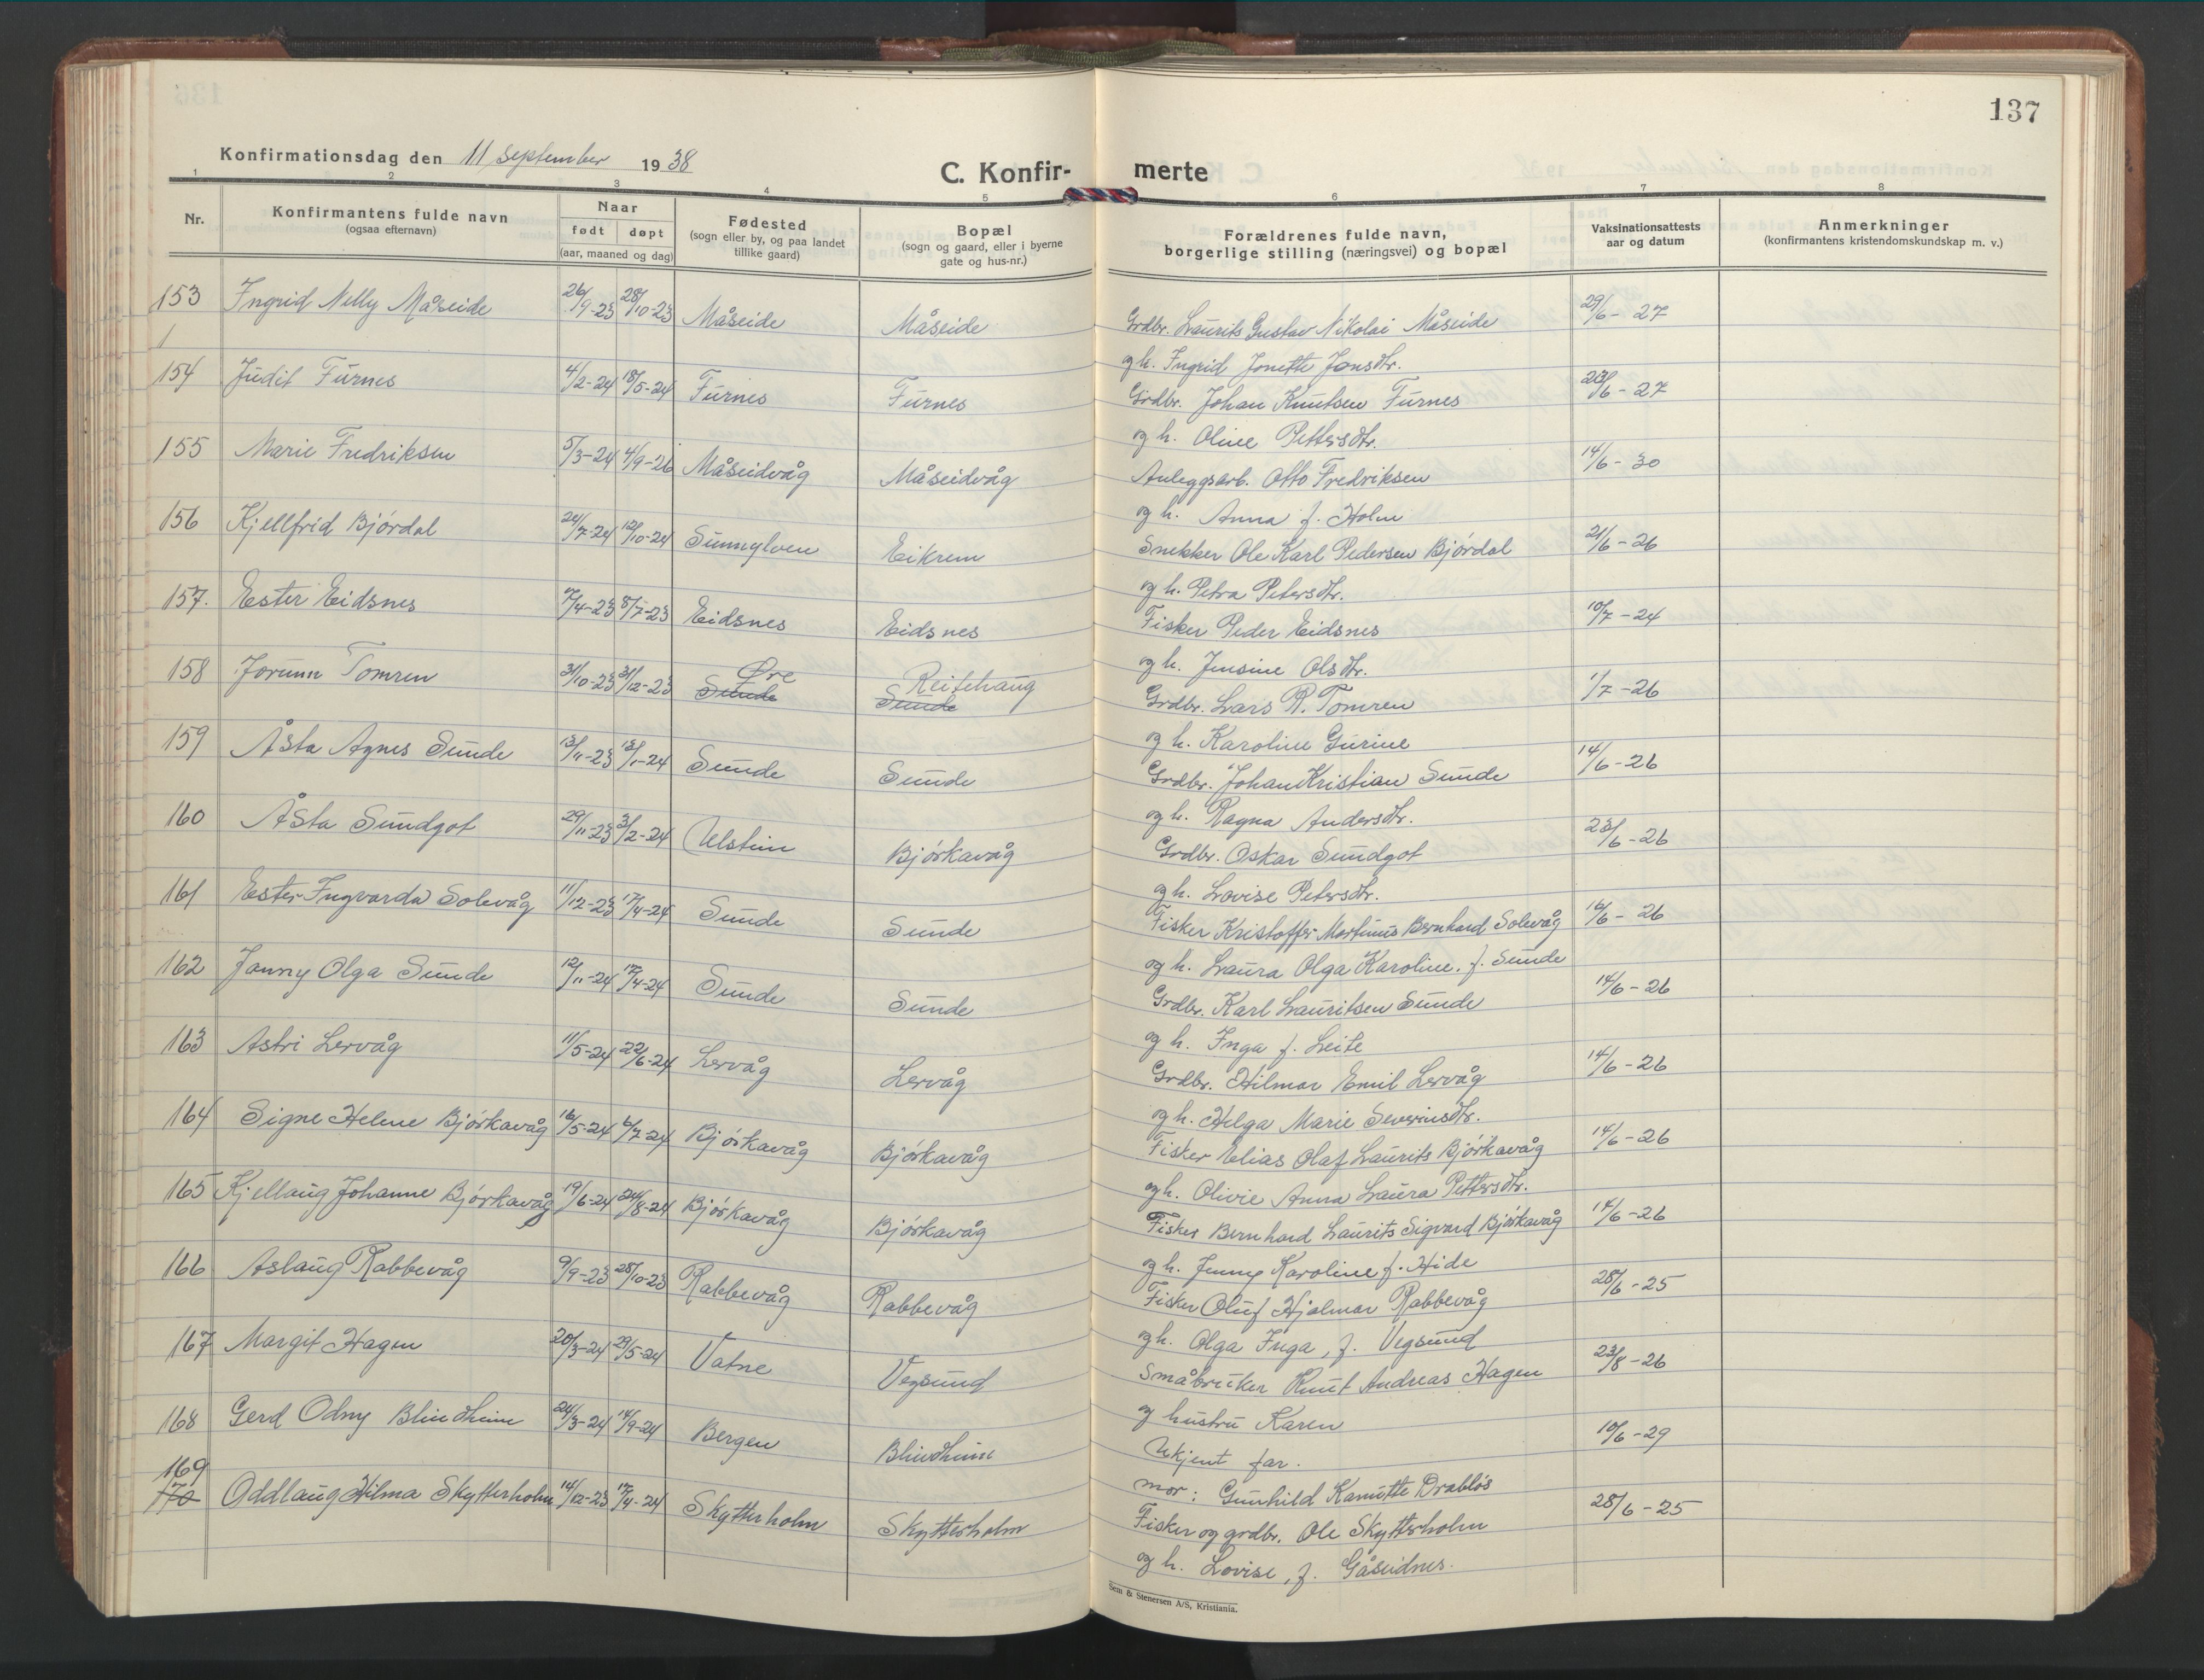 137
Konfirmationsdag den 11 september 1938
C. Konfir- merte
1 2 3 4 5 6 7 8
Nr. Konfirmantens fulde navn (ogsaa efternavn) Naar født døpt (aar, maaned og dag) Fødested (sogn eller by, og paa landet tillike gaard) Bopæl (sogn og gaard, eller i byerne gate og hus-nr.) Forældrenes fulde navn, borgerlige stilling (næringsvei) og bopæl Vaksinationsattests aar og datum Anmerkninger (konfirmantens kristendomskundskap m. v.)
153 Ingrid Nelly Måseide 26/9-23 28/10-23 Måseide Måseide Grdbr. Laurits Gustav Nikolai Måseide 29/6-27
1 og h. Ingrid Jonette Jonsdtr.
154 Judit Furnes 4/2-24 18/5-24 Furnes Furnes Grdbr. Johan Knutsen Furnes 23/6-27
og h. Oline Pettersdtr.
155 Marie Fredriksen 5/3-24 4/9-26 Måseidvåg Måseidvåg Anleggsarb. Otto Fredriksen 14/6-30
og h. Anna f. Holm
156 Kjellfrid Bjørdal 24/7-24 12/10-24 Sunnylven Eikrem Snekker Ole Karl Pedersen Bjørdal 21/6-26
og h. Petra Petersdtr.
157. Ester Eidsnes 17/4-23 8/7-23 Eidsnes Eidsnes Fisker Peder Eidsnes 10/7-24
og h. Jensine Olsdtr.
158 Jorunn Tomren 31/10-23 31/12-23 Øre Sunde Reitehaug Sunde Grdbr. Lars R. Tomren 1/7-26
og h. Karoline Gurine
159 Åsta Agnes Sunde 13/11-23 13/1-24 Sunde Sunde Grdbr. Johan Kristian Sunde 14/6-26
og h. Ragna Andersdtr.
160 Åsta Sundgot 29/11-23 3/2-24 Ulstein Bjørkavåg Grdbr. Oskar Sundgot 23/6-26
og h. Lovise Petersdtr.
161 Ester Ingvarda Solevåg 11/12-23 17/4-24 Sunde Sunde Fisker Kristoffer Martinus Bernhard Solevåg 16/6-26
og h. Laura Olga Karoline. f. Sunde
162 Janny Olga Sunde 12/11-24 17/4-24 Sunde Sunde Grdbr. Karl Lauritsen Sunde 14/6-26
og h. Inga f. Leite
163 Astri Lervåg 11/5-24 22/6-24 Lervåg Lervåg Grdbr. Hilmar Emil Lervåg 14/6-26
og h. Helga Marie Severinsdtr.
164 Signe Helene Bjørkavåg 16/5-24 6/7-24 Bjørkavåg Bjørkavåg Fisker Elias Olaf Laurits Bjørkavåg 14/6-26
og h. Olivie Anna Laura Pettersdtr.
165 Kjellaug Johanne Bjørkavåg 19/6-24 24/8-24 Bjørkavåg Bjørkavåg Fisker Bernhard Laurits Sigvard Bjørkavåg 14/6-26
og h. Jenny Karoline f. Hide
166 Aslaug Rabbevåg 9/9-23 28/10-23 Rabbevåg Rabbevåg Fisker Oluf Hjalmar Rabbevåg 28/6-25
og h. Olga Inga, f. Vegsund
167 Margit Hagen 20/3-24 29/5-24 Vatne Vegsund Småbruker Knut Andreas Hagen 23/8-26
og hustru Karen
168 Gerd Odny Blindheim 24/3-24 14/9-24 Bergen Blindheim Ukjent far. 10/6-29
mor: Gunhild Kanutte Drabløs
169 170 Oddlaug Hilma Skytterholm 14/12-23 17/4-24 Skytterholm Skytterholm Fisker og grdbr. Ole Skytterholm 28/6-25
og h. Lovise, f. Gåseidnes.
Sem & Stenersen A/S, Kristiania.